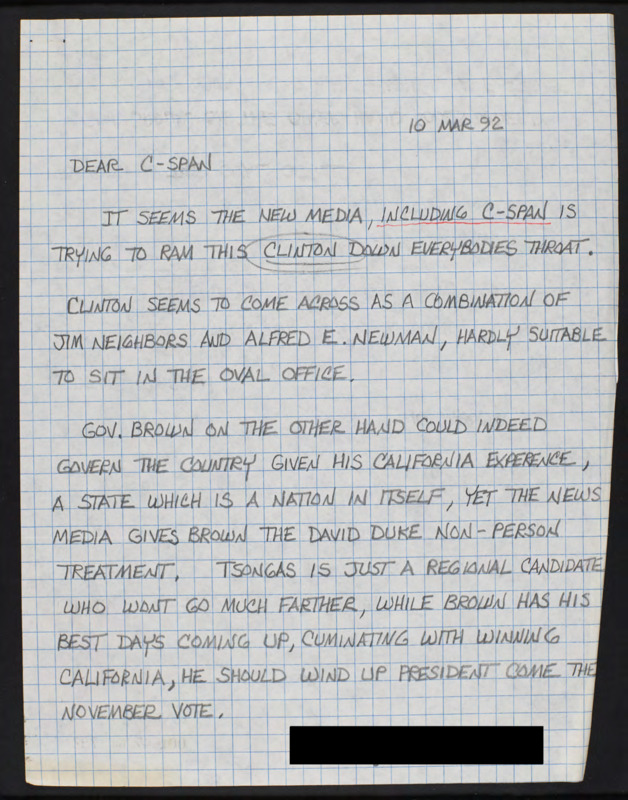 10 MAR 92
DEAR C-SPAN
IT SEEMS THE NEW MEDIA, INCLUDING C-SPAN IS
TRYING TO RAM THIS CLINTON DOWN EVERYBODIES THROAT.
CLINTON SEEMS TO COME ACROSS AS A COMBINATION OF
JIM NEIGHBORS AND ALFRED E. NEWMAN, HARDLY SUITABLE
TO SIT IN THE OVAL OFFICE.
GOV. BROWN ON THE OTHER HAND COULD INDEED
GOVERN THE COUNTRY GIVEN HIS CALIFORNIA EXPERENCE,
A STATE WHICH IS A NATION IN ITSELF, YET THE NEWS
MEDIA GIVES BROWN THE DAVID DUKE NON-PERSON
TREATMENT. TSONGAS IS JUST A REGIONAL CANDIDATE
WHO WONT GO MUCH FARTHER, WHILE BROWN HAS HIS
BEST DAYS COMING UP, CUMINATING WITH WINNING
CALIFORNIA, HE SHOULD WIND UP PRESIDENT COME THE
NOVEMBER VOTE.